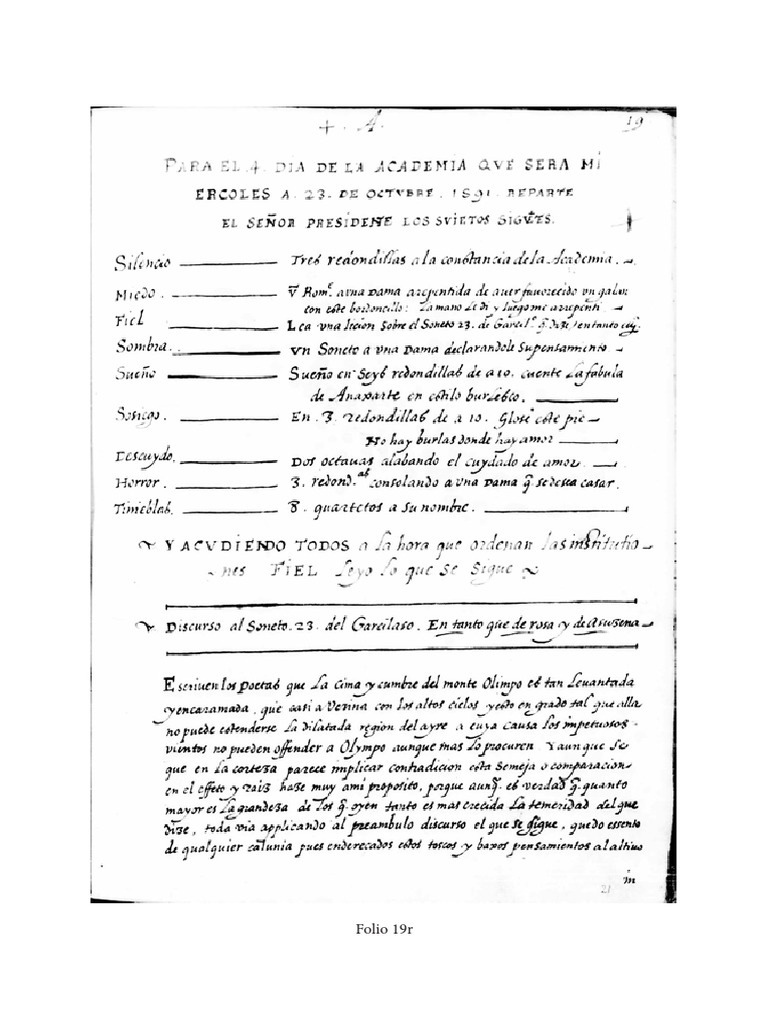 + . A. 19
PARA EL .4. DIA DE LA ACADEMIA QVE SERA MI
ERCOLES A . 23. DE OCTVBRE . 1591. REPARTE
EL SEÑOR PRESIDENTE LOS SVIETOS SIGVĒTES.
Silencio Tres redondillas a la constancia de la Academia.
Miedo. V̄ Romᶜᵉ a vna Dama arepentida de aver favorecido vn galan
con este bordoncillo: La mano le di y luego me arrepentí
Fiel Lea vna licion sobre el Soneto 23. de Garcilᵒ q̄ Dize, en tanto
Sombra. vn Soneto a vna Dama declarandole su pensamiento
Sueño Sueño en Seys redondillas de a 10. cuente La fabula
de Anaxarte en estilo burlesco.
Sosiego. En . 3. redondillas de a 10. Glose este pie
No hay burlas donde hay amor
Descuydo. Dos octavas alabando el cuydado de amor.
Horror. 3. redond.ᵃˢ consolando a vna Dama q̄ se desea casar.
Tinieblas. 8. quartetos a su nombre.
Y ACVDIENDO TODOS a la hora que ordenan las institutio
nes FIEL Leyo lo que se sigue
Discurso al Soneto . 23. del Garcilaso. En tanto que de rosa y de Asuzena
Escriuen los Poetas que La Cima y cumbre del monte Olimpo es tan Levantada
y encaramada, que casi a Vezina con los altos cielos y esto en grado tal que alla
no puede estenderse La dilatada region del ayre a cuya causa los impetuosos
vientos no pueden offender a Olympo aunque mas lo procuren. Y aunque se
que en La corteza parece implicar contradicion esta Semeja o comparacion
en el effeto y raiz haze muy a mi proposito, porque aunq̄. es verdad q̄. quanto
mayor es La grandeza de los q̄. oyen tanto es mas crecida La temeridad del que
dize, toda via applicando al preambulo discurso el que se sigue, quedo essento
de qualquier calunia pues enderecados estos toscos y baxos pensamientos al altiuo
21
Folio 19r